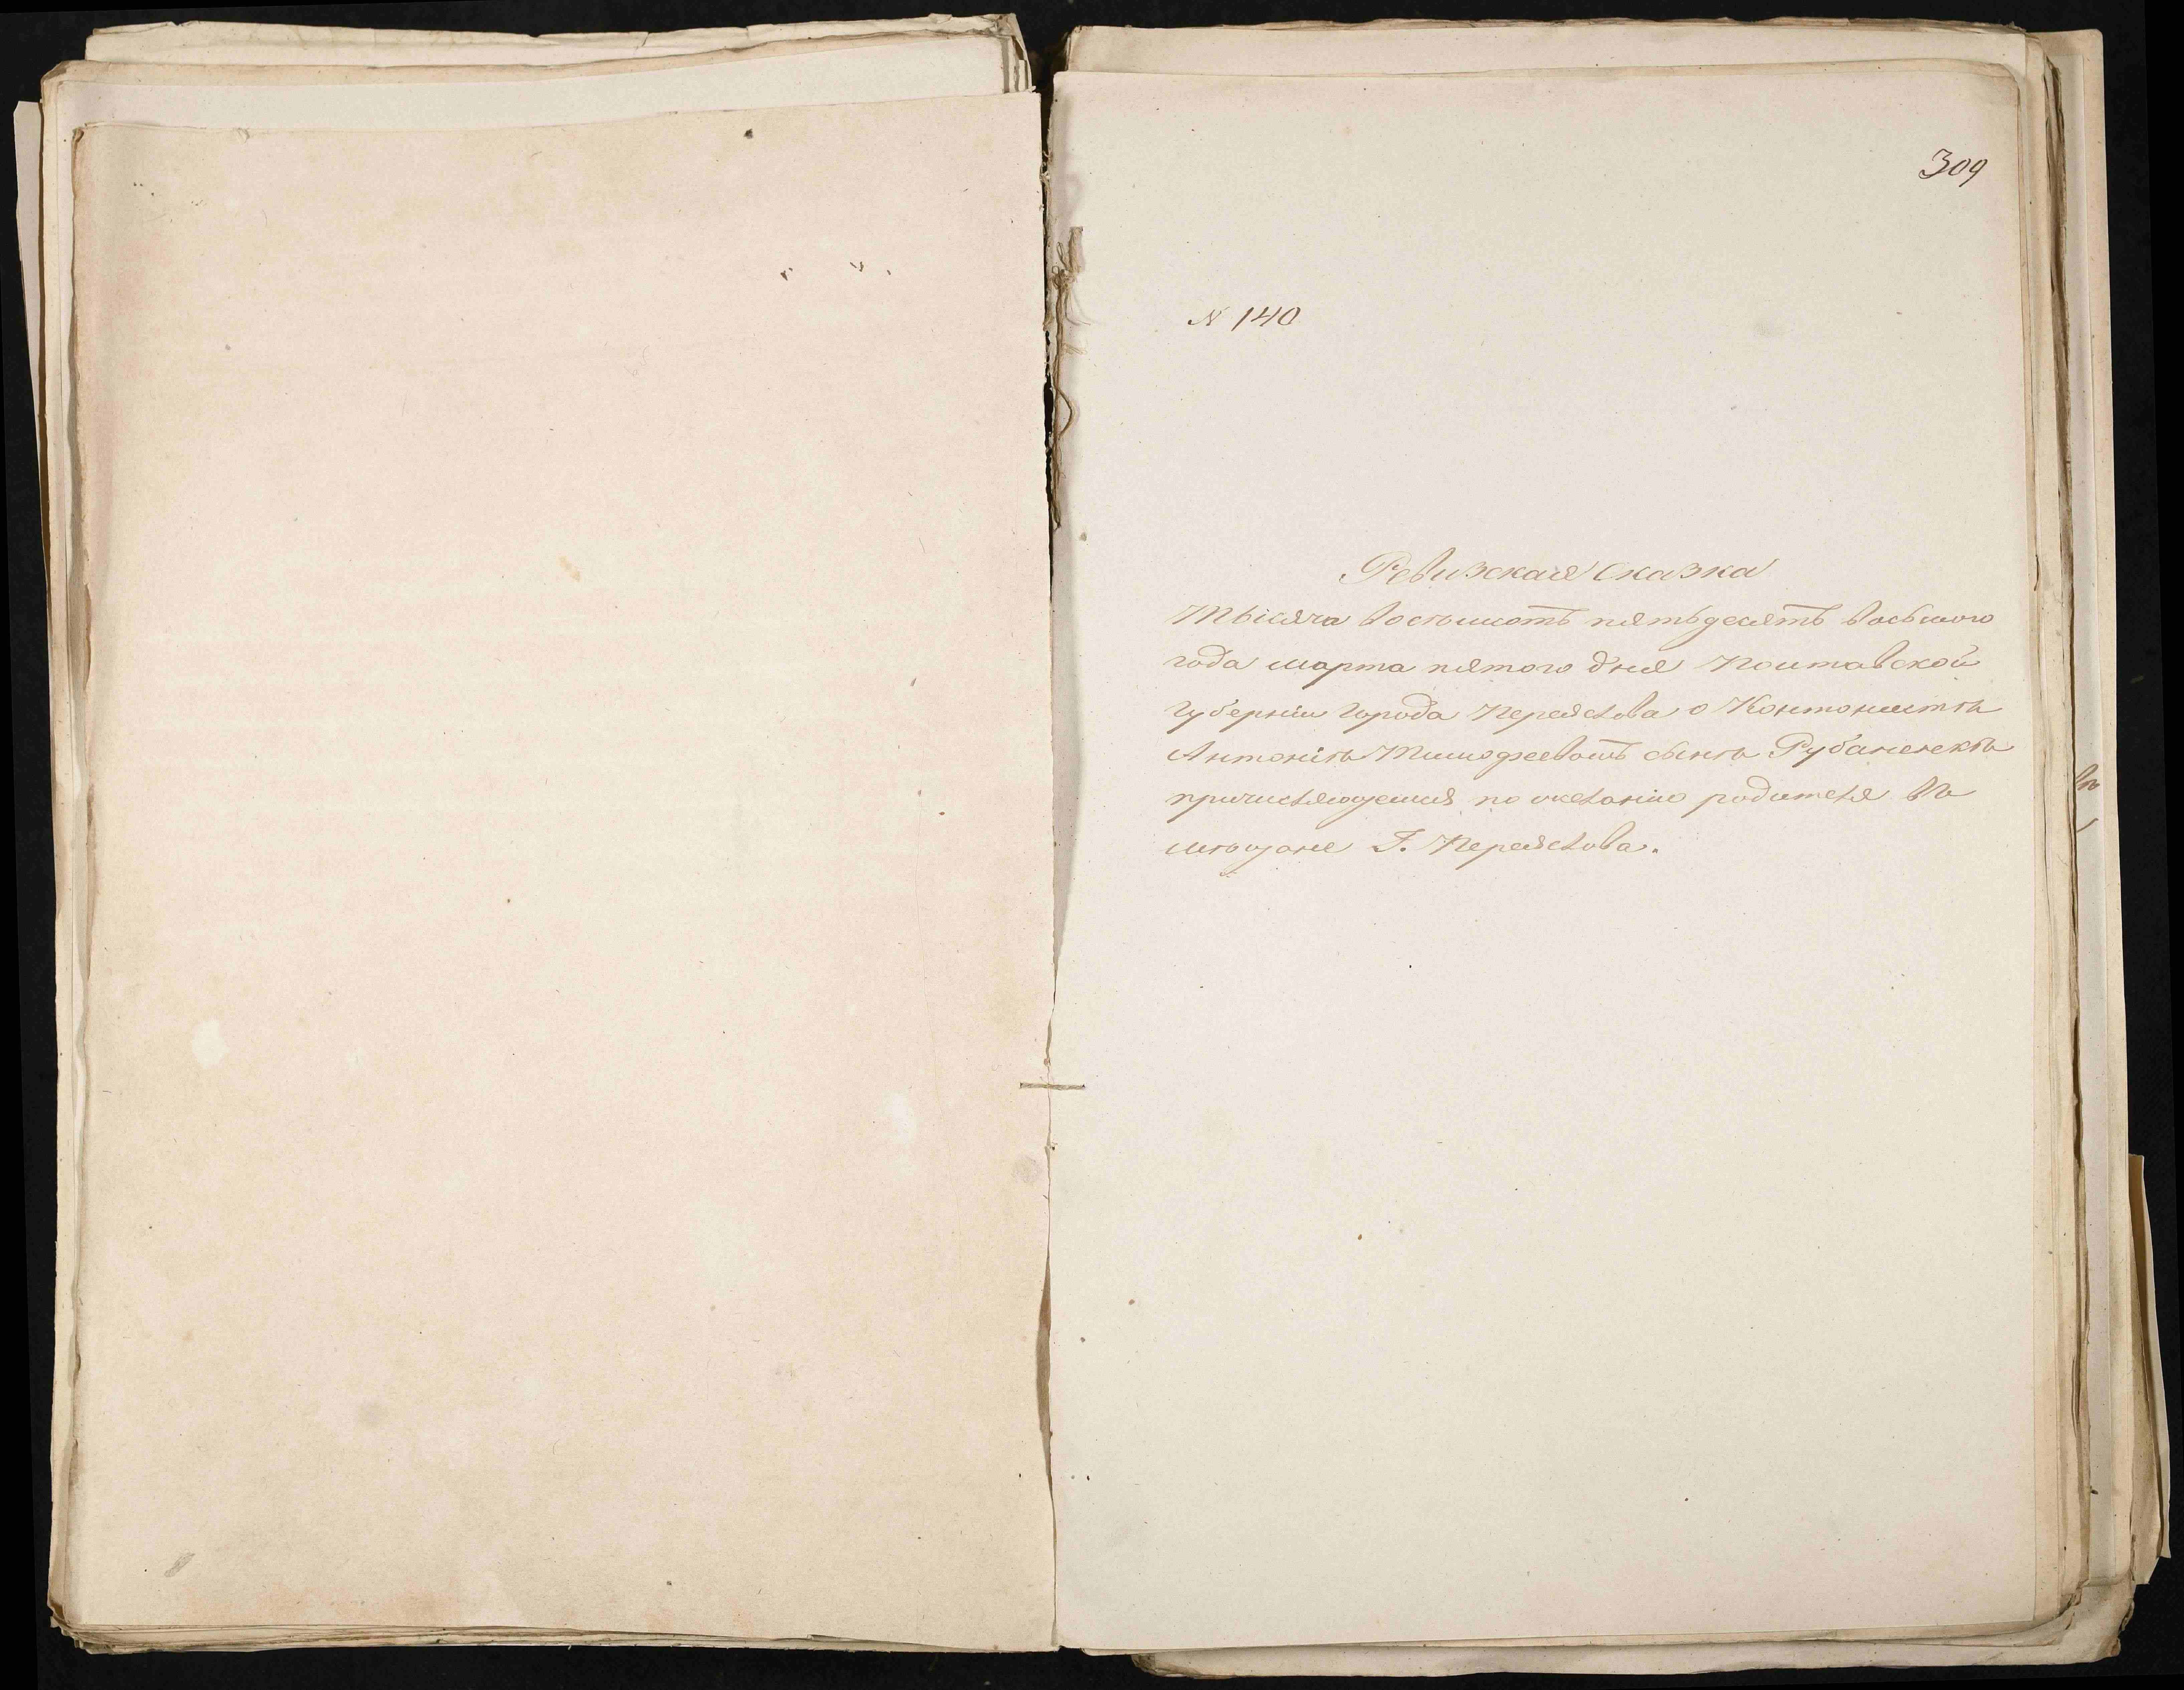 309
N 140
Ревизская Сказка
Тысяча восемьсотъ пятьдесятъ восьмого
года марта пятого дня Полтавской
губерніи города Переяслова о Кантонистѣ
Антоніѣ Тимофеевомъ сынѣ Рубаненкѣ
причисляющемся по желанію родителя въ
мѣщане Г. Переяслова.